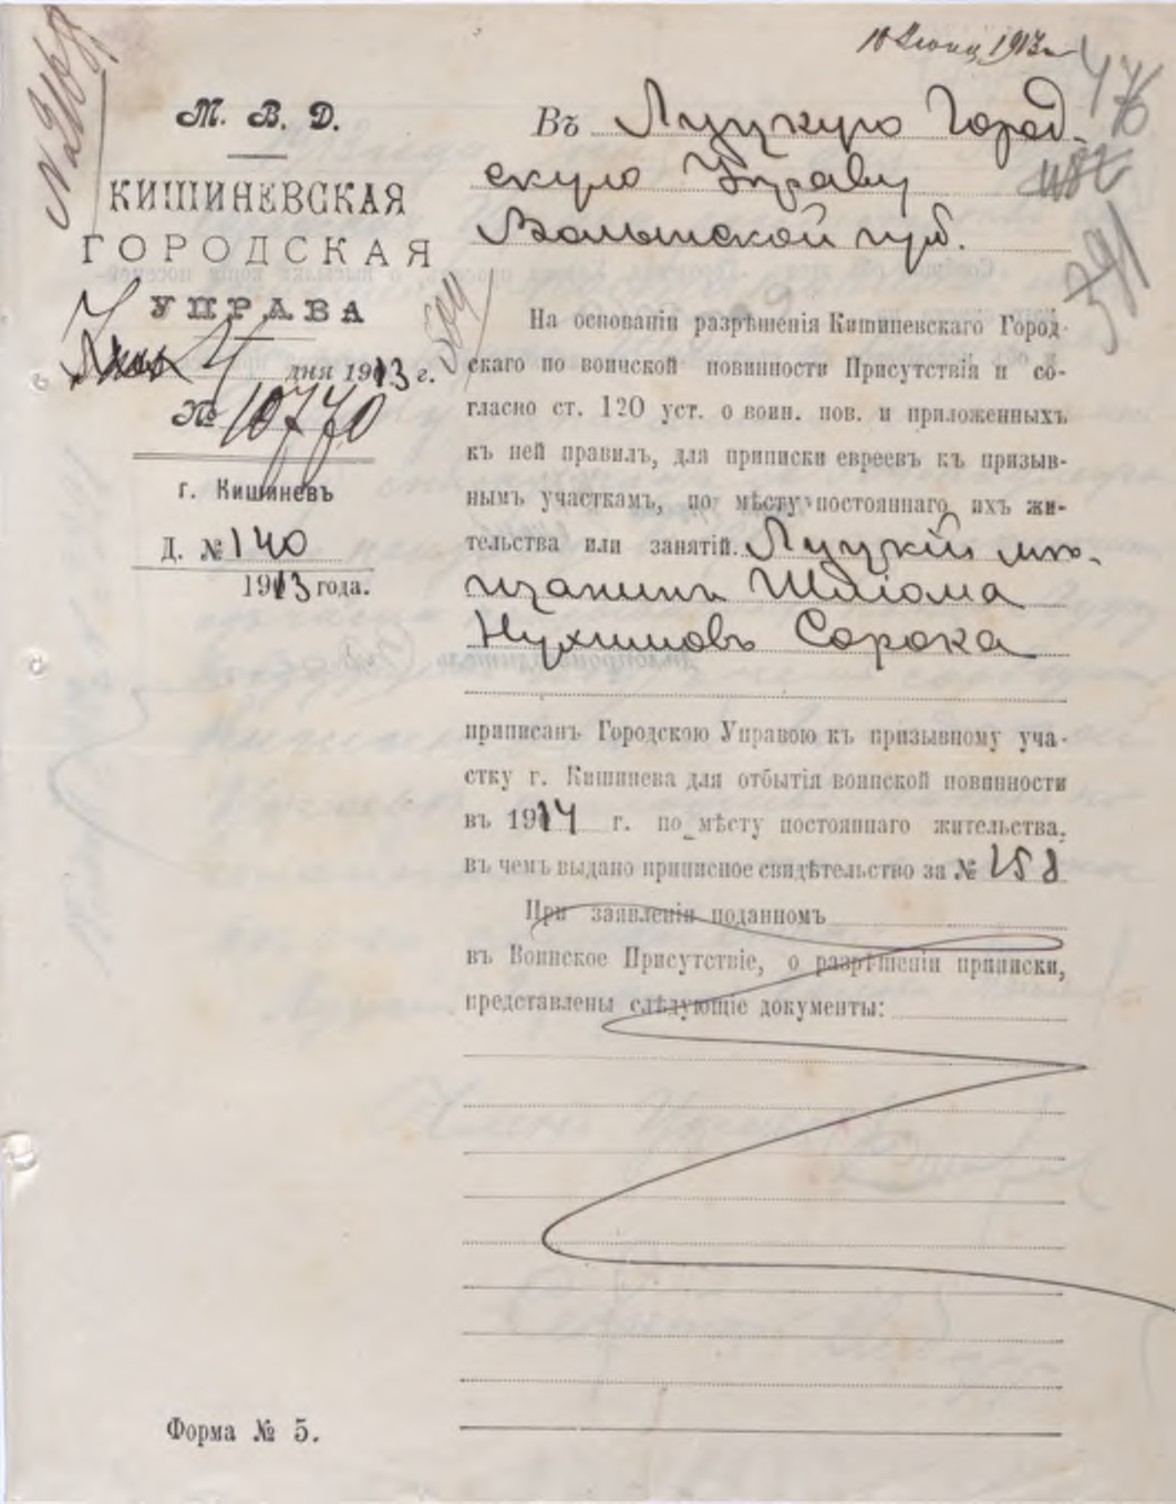 10 Июня 1913 г.
М. В. Д.
КИШИНЕВСКАЯ
ГОРОДСКАЯ
УПРАВА
дня 1913 г.
№ 10770
г. Кишиневъ
Д. № 140
1913 года.
Въ Луцкую Город-
скую Управу
Волынской губ.
476
391
На основаніи разрѣшенія Кишиневскаго Город-
скаго по воинской повинности Присутствія и со-
гласно ст. 120 уст. о воин. пов. и приложенныхъ
къ ней правилъ, для приписки евреевъ къ призыв-
нымъ участкамъ, по мѣсту постояннаго ихъ жи-
тельства или занятій. Луцкій мѣ-
щанинъ Шлiома
Нухимовъ Сорока
приписанъ Городскою Управою къ призывному уча-
стку г. Кишинева для отбытія воинской повинности
въ 1914 г. по мѣсту постояннаго жительства,
въ чемъ выдано приписное свидѣтельство за № 258
При заявленіи поданномъ
въ Воинское Присутствіе, о разрѣшеніи приписки,
представлены слѣдующіе документы:
Форма № 5.